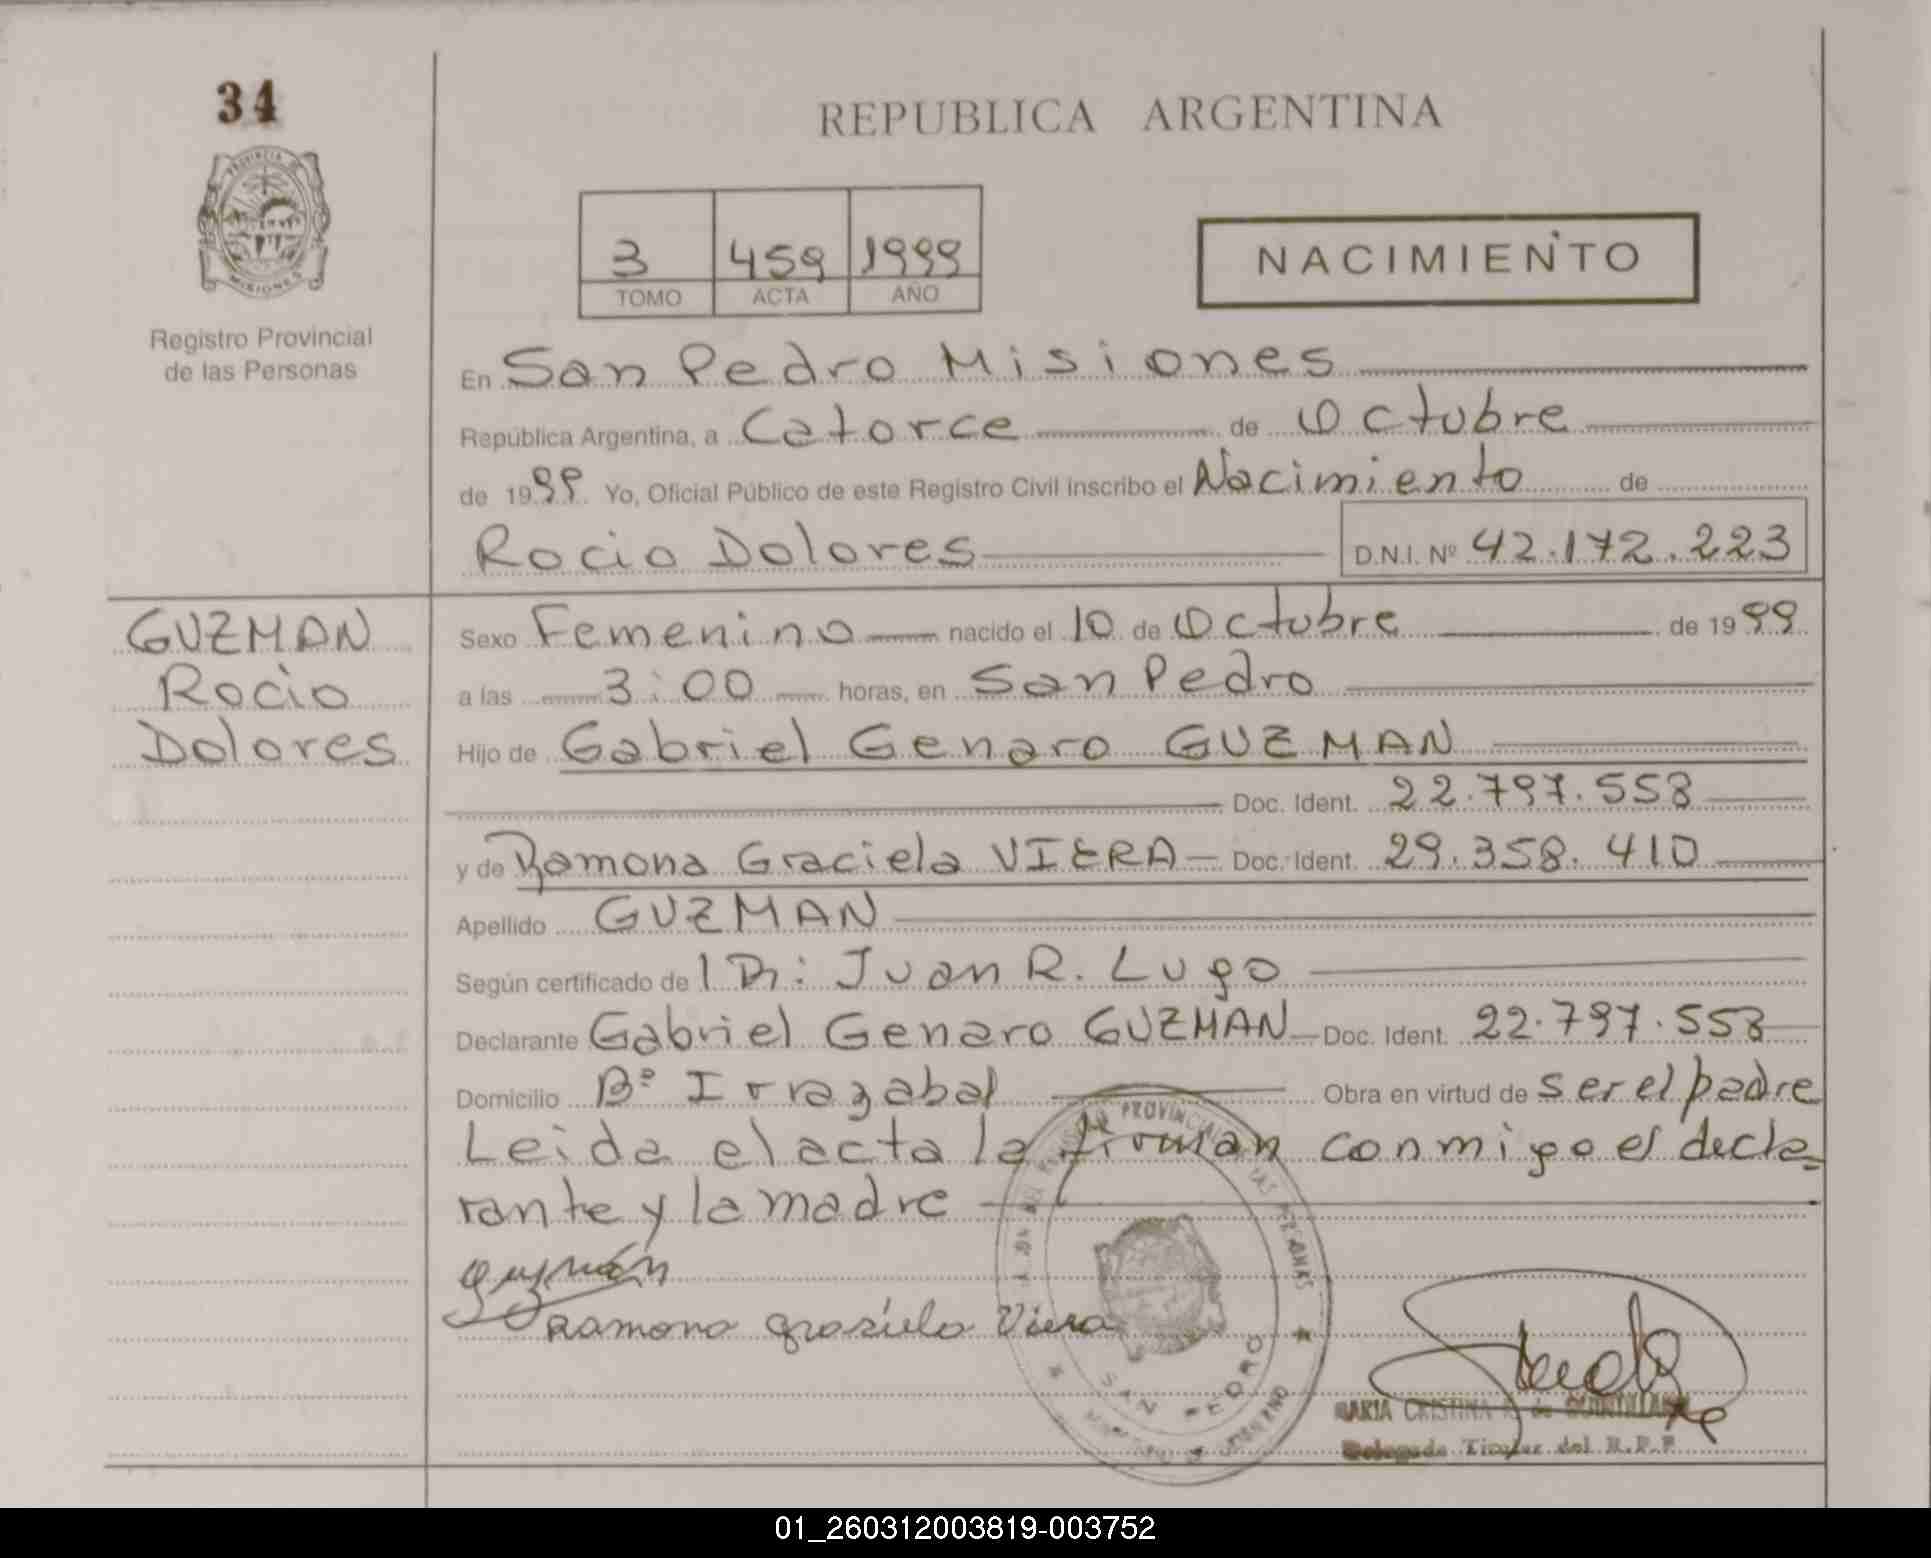 34
PROVINCIA DE
MISIONES
Registro Provincial
de las Personas
REPUBLICA ARGENTINA
3 459 1999
TOMO ACTA AÑO
NACIMIENTO
En San Pedro Misiones
República Argentina, a Catorce de Octubre
de 1999 Yo, Oficial Público de este Registro Civil inscribo el Nacimiento de
Rocio Dolores D.N.I. Nº 42.172.223
GUZMAN
Rocio
Dolores
Sexo Femenino nacido el 10 de Octubre de 1999
a las 3:00 horas, en San Pedro
Hijo de Gabriel Genaro GUZMAN
Doc. Ident. 22.797.558
y de Ramona Graciela VIERA Doc. Ident. 29.358.410
Apellido GUZMAN
Según certificado de l Dr: Juan R. Lugo
Declarante Gabriel Genaro GUZMAN Doc. Ident. 22.797.558
Domicilio Bº Irrazabal Obra en virtud de ser el padre
Leida el acta la firman conmigo el decla-
rante y la madre
guzmán
Ramona grasiela Viera
PROVINCIAL LAS PERSONAS
SAN PEDRO
GOBIERNO
MARIA CRISTINA de QUINTILLAN
Delegada Titular del R.P.P.
01_260312003819-003752